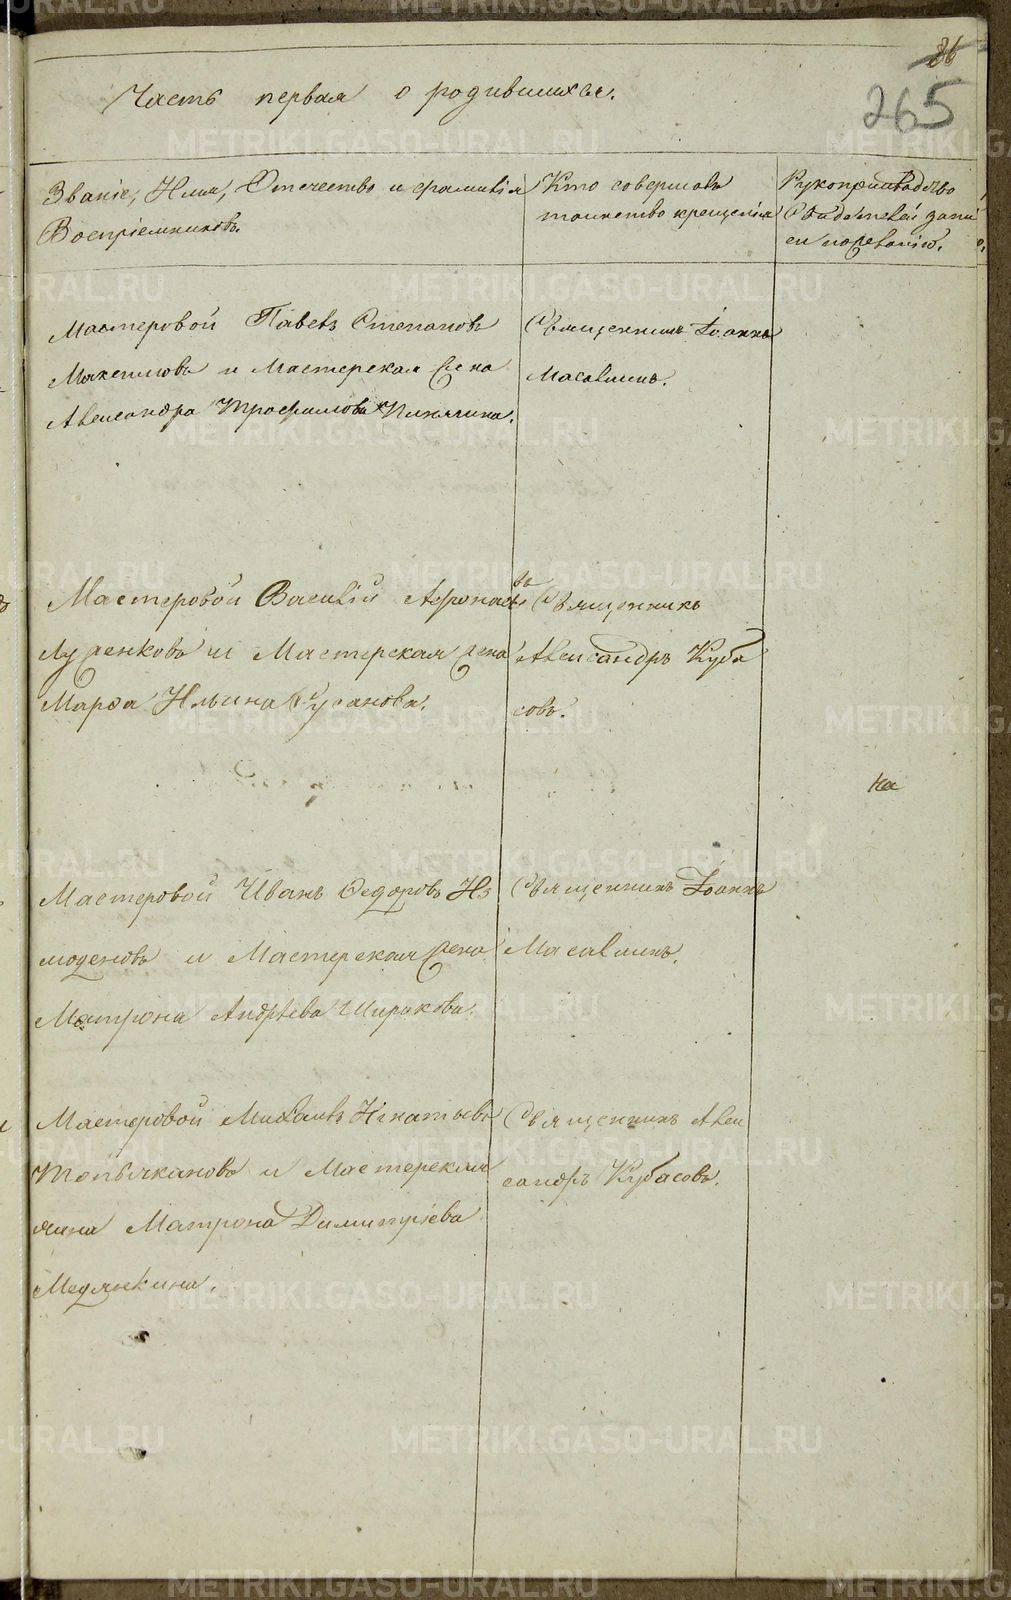 86
265
Часть первая о родившихся.
Званіе, Имя, Отечество и фамилія
Воспріемниковъ.
Кто совершалъ
таинство крещенія
Рукоприкладство
свидѣтелей запи
си по желанію.
Мастеровой Павелъ Степановъ
и Мастерская жена
Александра Трофимова
Священникъ Іоаннъ
Масалкинъ.
Мастеровой Василій Афонась
въ
Лученковъ и Мастерская жена
Марѳа Ильина Русанова.
Священникъ
Александръ Куба
совъ.
на
Мастеровой Иванъ Ѳедоровъ Из
моденовъ и Мастерская жена
Матрона Андрѣева Ширакова.
Священникъ Іоаннъ
Масалкинъ.
Мастеровой Михаилъ Игнатьевъ
Топычкановъ и Мастерская
жена Матрона Димитріева
Медянкина.
Священникъ Алек
сандръ Кубасовъ.
METRIKI.GASO-URAL.RU